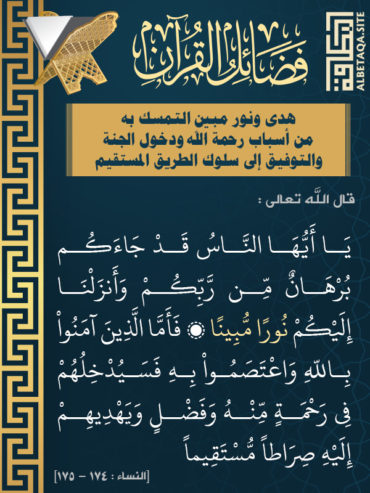 فضائل القرآن
البطاقة
ALBETAQA.SITE
هدى ونور مبين التمسك به
من أسباب رحمة الله ودخول الجنة
والتوفيق إلى سلوك الطريق المستقيم
قال اللَّه تعالى :
يَا أَيُّهَا النَّاسُ قَدْ جَاءَكُم
بُرْهَانٌ مِّن رَّبِّكُمْ وَأَنزَلْنَا
إِلَيْكُمْ نُورًا مُّبِينًا ۞ فَأَمَّا الَّذِينَ آمَنُواْ
بِاللّهِ وَاعْتَصَمُواْ بِهِ فَسَيُدْخِلُهُمْ
فِي رَحْمَةٍ مِّنْهُ وَفَضْلٍ وَيَهْدِيهِمْ
إِلَيْهِ صِرَاطاً مُّسْتَقِيماً
[النساء : ١٧٤ - ١٧٥]